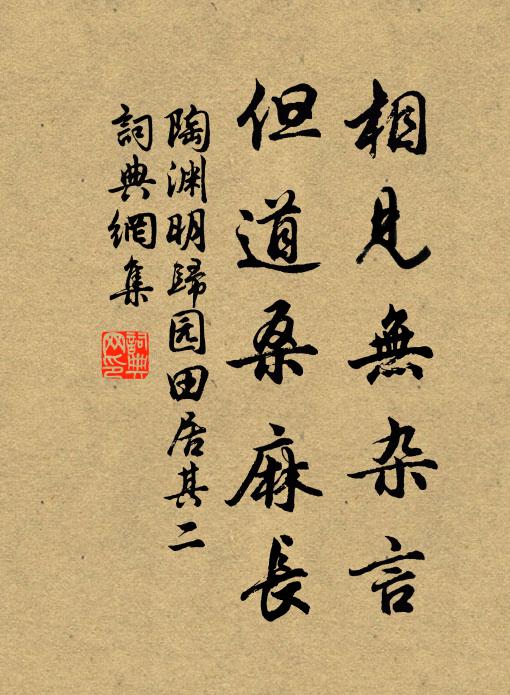 相見無杂言
但道桑麻長
陶渊明歸园田居其二
詞典網集
詞典网印